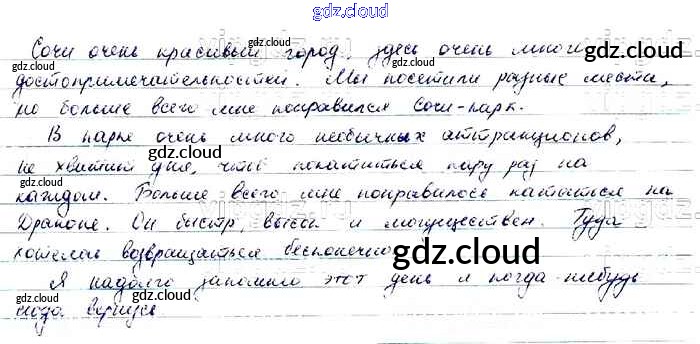 gdz.cloud
Сочи очень красивый город, здесь очень много
gdz.cloud
достопримечательностей. Мы посетили разные места,
но больше всего мне понравился Сочи-парк.
В парке очень много необычных аттракционов,
gdz.cloud
не хватит дня, чтоб покататься пару раз на
gdz.cloud
каждом. Больше всего мне понравилось кататься на
Драконе. Он быстр, высок и могуществен. Туда
хотелось возвращаться бесконечно
gdz.cloud
Я надолго запомню этот день и когда-нибудь
gdz.cloud
сюда вернусь
gdz.cloud
gdz.cloud